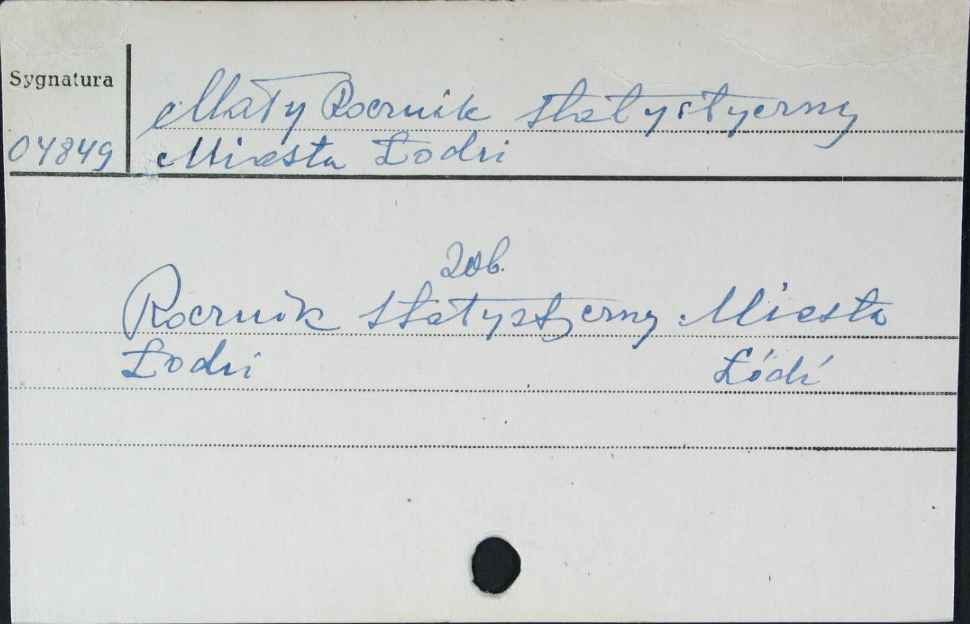 Sygnatura
04849
Mały Rocznik Statystyczny
Miasta Łodzi
Zob.
Rocznik Statystyczny Miasta
Łodzi Łódź